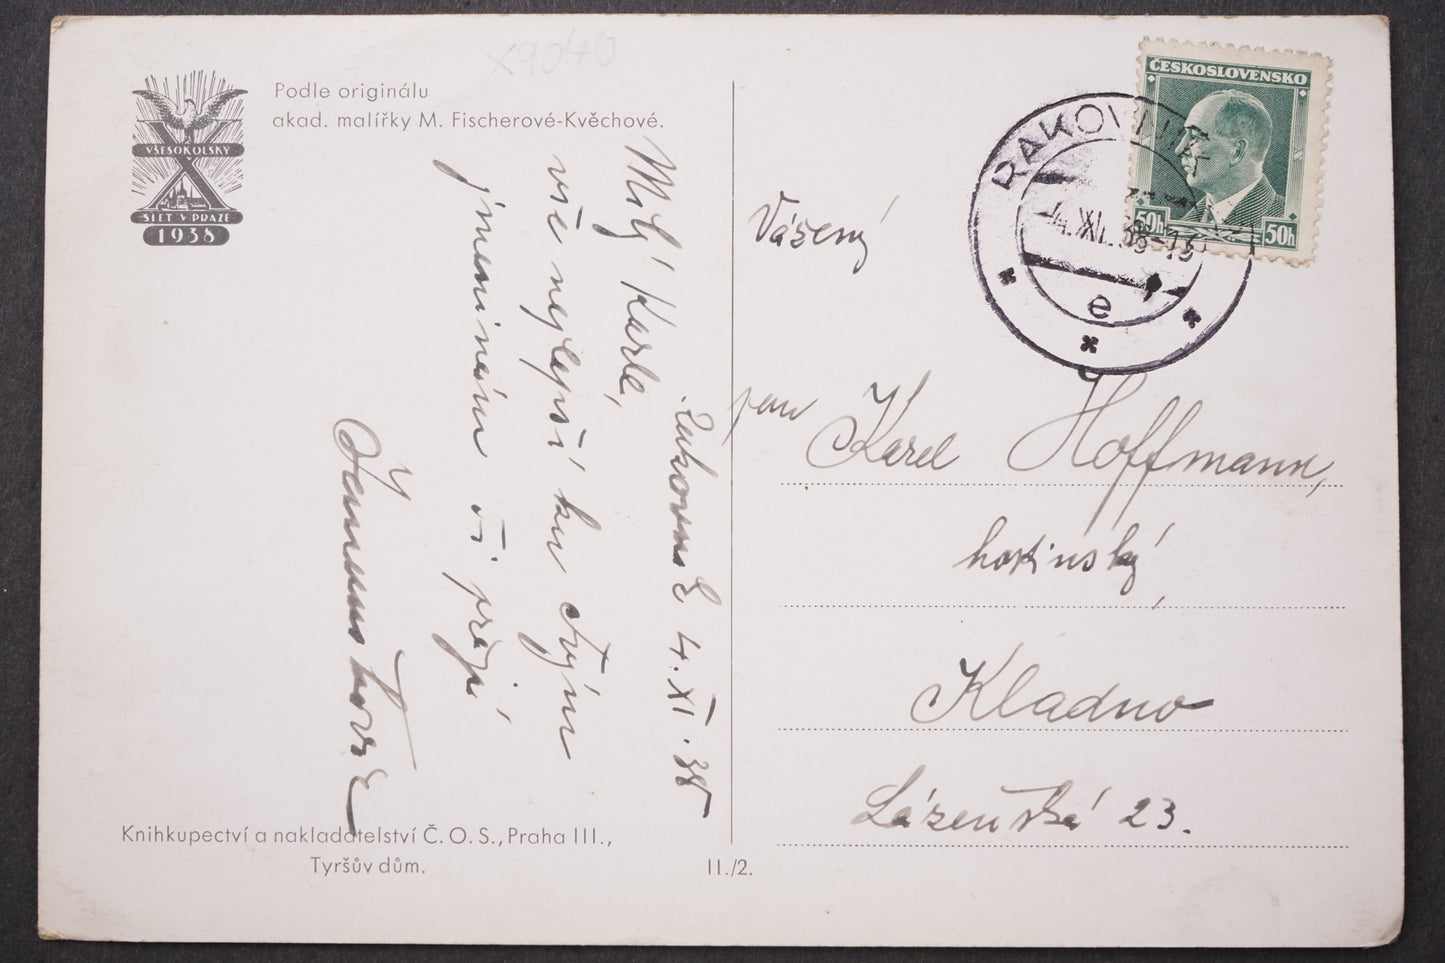 x9040
Podle originálu
akad. malířky M. Fischerové-Kvěchové.
VŠESOKOLSKÝ
SLET V PRAZE
1938
Milý Karle,
vše nejlepší ku Tvým
jmeninám Ti přejí
4. XI. 38
Knihkupectví a nakladatelství Č. O. S., Praha III.,
Tyršův dům.
II./2.
ČESKOSLOVENSKO
50h 50h
RAKOVNÍK
4.XI.38-13
e
Vážený
pan Karel Hoffmann,
hostinský,
Kladno
Lázeňská 23.